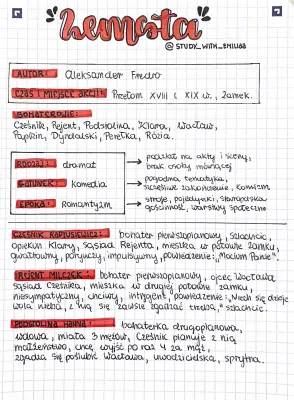 "Zemsta"
@STUDY_WITH_EMILI88
AUTOR: Aleksander Fredro
CZAS I MIEJSCE AKCJI: Przełom XVIII i XIX w., Zamek.
BOHATEROWIE:
Cześnik, Rejent, Podstolina, Klara, Wacław,
Papkin, Dyndalski, Perełka, Rózia.
RODZAJ: dramat → podział na akty i sceny,
brak osoby mówiącej
GATUNEK: komedia → pogodna tematyka,
szczęśliwe zakończenie, komizm
EPOKA: romantyzm → stroje, pojedynki, staropolska
gościnność, warstwy społeczne
CZEŚNIK RAPTUSIEWICZ: bohater pierwszoplanowy, szlachcic,
opiekun Klary, sąsiad Rejenta, mieszka w połowie zamku,
gwałtowny, porywczy, impulsywny, powiedzenie: „Mocium Panie".
REJENT MILCZEK: bohater pierwszoplanowy, ojciec Wacława
sąsiad Cześnika, mieszka w drugiej połowie zamku,
niesympatyczny, chciwy, intrygant, powiedzenie: „Niech się dzieje
wola nieba, z nią się zawsze zgadzać trzeba," szlachcic.
PODSTOLINA HANNA: bohaterka drugoplanowa,
wdowa, miała 3 mężów, Cześnik planuje z nią
małżeństwo, chce wyjść po raz 4 za mąż,
zgadza się poślubić Wacława, uwodzicielska, sprytna.